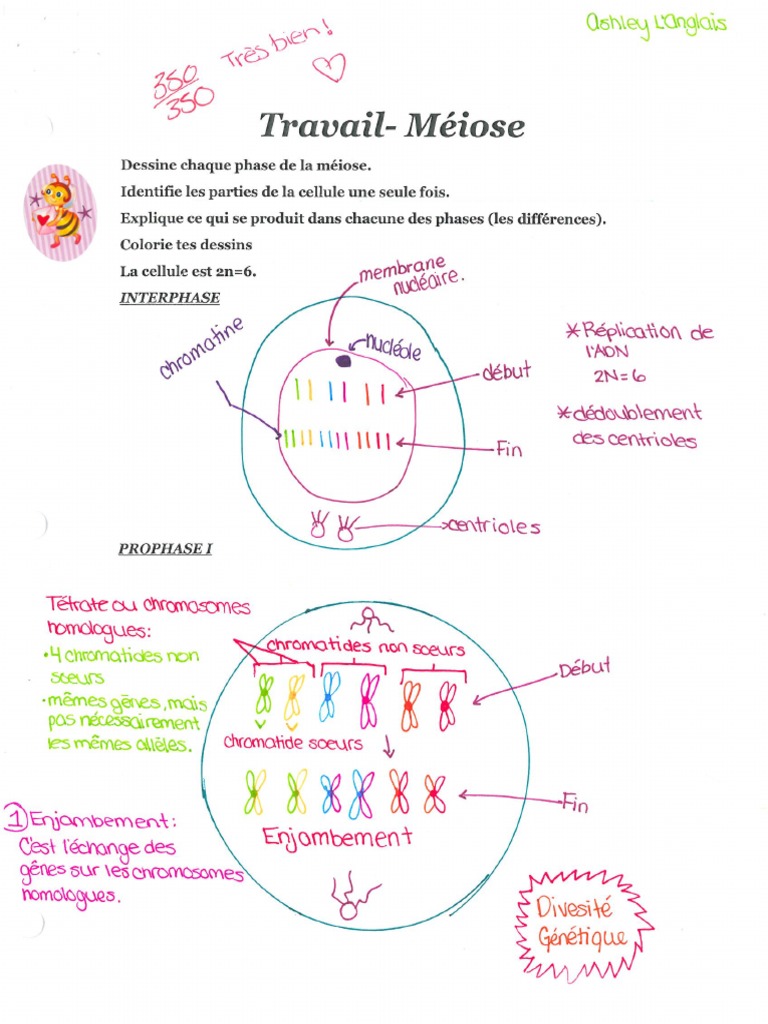 Ashley L'Anglais
350
350
Très bien!
Travail- Méiose
Dessine chaque phase de la méiose.
Identifie les parties de la cellule une seule fois.
Explique ce qui se produit dans chacune des phases (les différences).
Colorie tes dessins
La cellule est 2n=6.
INTERPHASE
membrane
nucléaire.
chromatine
nucléole
début
Fin
centrioles
*Réplication de
l'ADN
2N=6
*dédoublement
des centrioles
PROPHASE I
Tétrate ou chromosomes
homologues:
•4 chromatides non
soeurs
•mêmes gênes, mais
pas nécessairement
les mêmes allèles.
chromatides non soeurs
Début
chromatide soeurs
Fin
Enjambement
1 Enjambement:
C'est l'échange des
gênes sur les chromosomes
homologues.
Divesité
Génétique